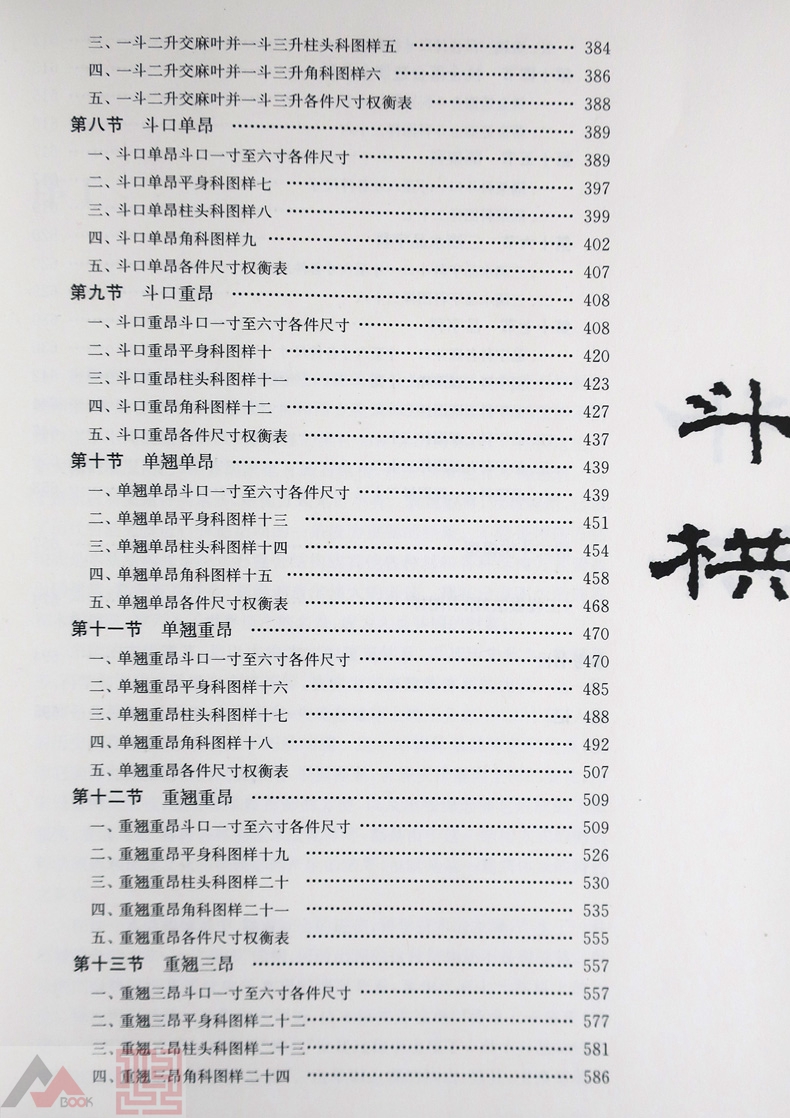 三、一斗二升交麻叶并一斗三升柱头科图样五 ………… 384
四、一斗二升交麻叶并一斗三升角科图样六 ………… 386
五、一斗二升交麻叶并一斗三升各件尺寸权衡表 ………… 388
第八节 斗口单昂 ………… 389
一、斗口单昂斗口一寸至六寸各件尺寸 ………… 389
二、斗口单昂平身科图样七 ………… 397
三、斗口单昂柱头科图样八 ………… 399
四、斗口单昂角科图样九 ………… 402
五、斗口单昂各件尺寸权衡表 ………… 407
第九节 斗口重昂 ………… 408
一、斗口重昂斗口一寸至六寸各件尺寸 ………… 408
二、斗口重昂平身科图样十 ………… 420
三、斗口重昂柱头科图样十一 ………… 423
四、斗口重昂角科图样十二 ………… 427
五、斗口重昂各件尺寸权衡表 ………… 437
第十节 单翘单昂 ………… 439
一、单翘单昂斗口一寸至六寸各件尺寸 ………… 439
二、单翘单昂平身科图样十三 ………… 451
三、单翘单昂柱头科图样十四 ………… 454
四、单翘单昂角科图样十五 ………… 458
五、单翘单昂各件尺寸权衡表 ………… 468
第十一节 单翘重昂 ………… 470
一、单翘重昂斗口一寸至六寸各件尺寸 ………… 470
二、单翘重昂平身科图样十六 ………… 485
三、单翘重昂柱头科图样十七 ………… 488
四、单翘重昂角科图样十八 ………… 492
五、单翘重昂各件尺寸权衡表 ………… 507
第十二节 重翘重昂 ………… 509
一、重翘重昂斗口一寸至六寸各件尺寸 ………… 509
二、重翘重昂平身科图样十九 ………… 526
三、重翘重昂柱头科图样二十 ………… 530
四、重翘重昂角科图样二十一 ………… 535
五、重翘重昂各件尺寸权衡表 ………… 555
第十三节 重翘三昂 ………… 557
一、重翘三昂斗口一寸至六寸各件尺寸 ………… 557
二、重翘三昂平身科图样二十二 ………… 577
三、重翘三昂柱头科图样二十三 ………… 581
四、重翘三昂角科图样二十四 ………… 586
斗
栱
BOOK